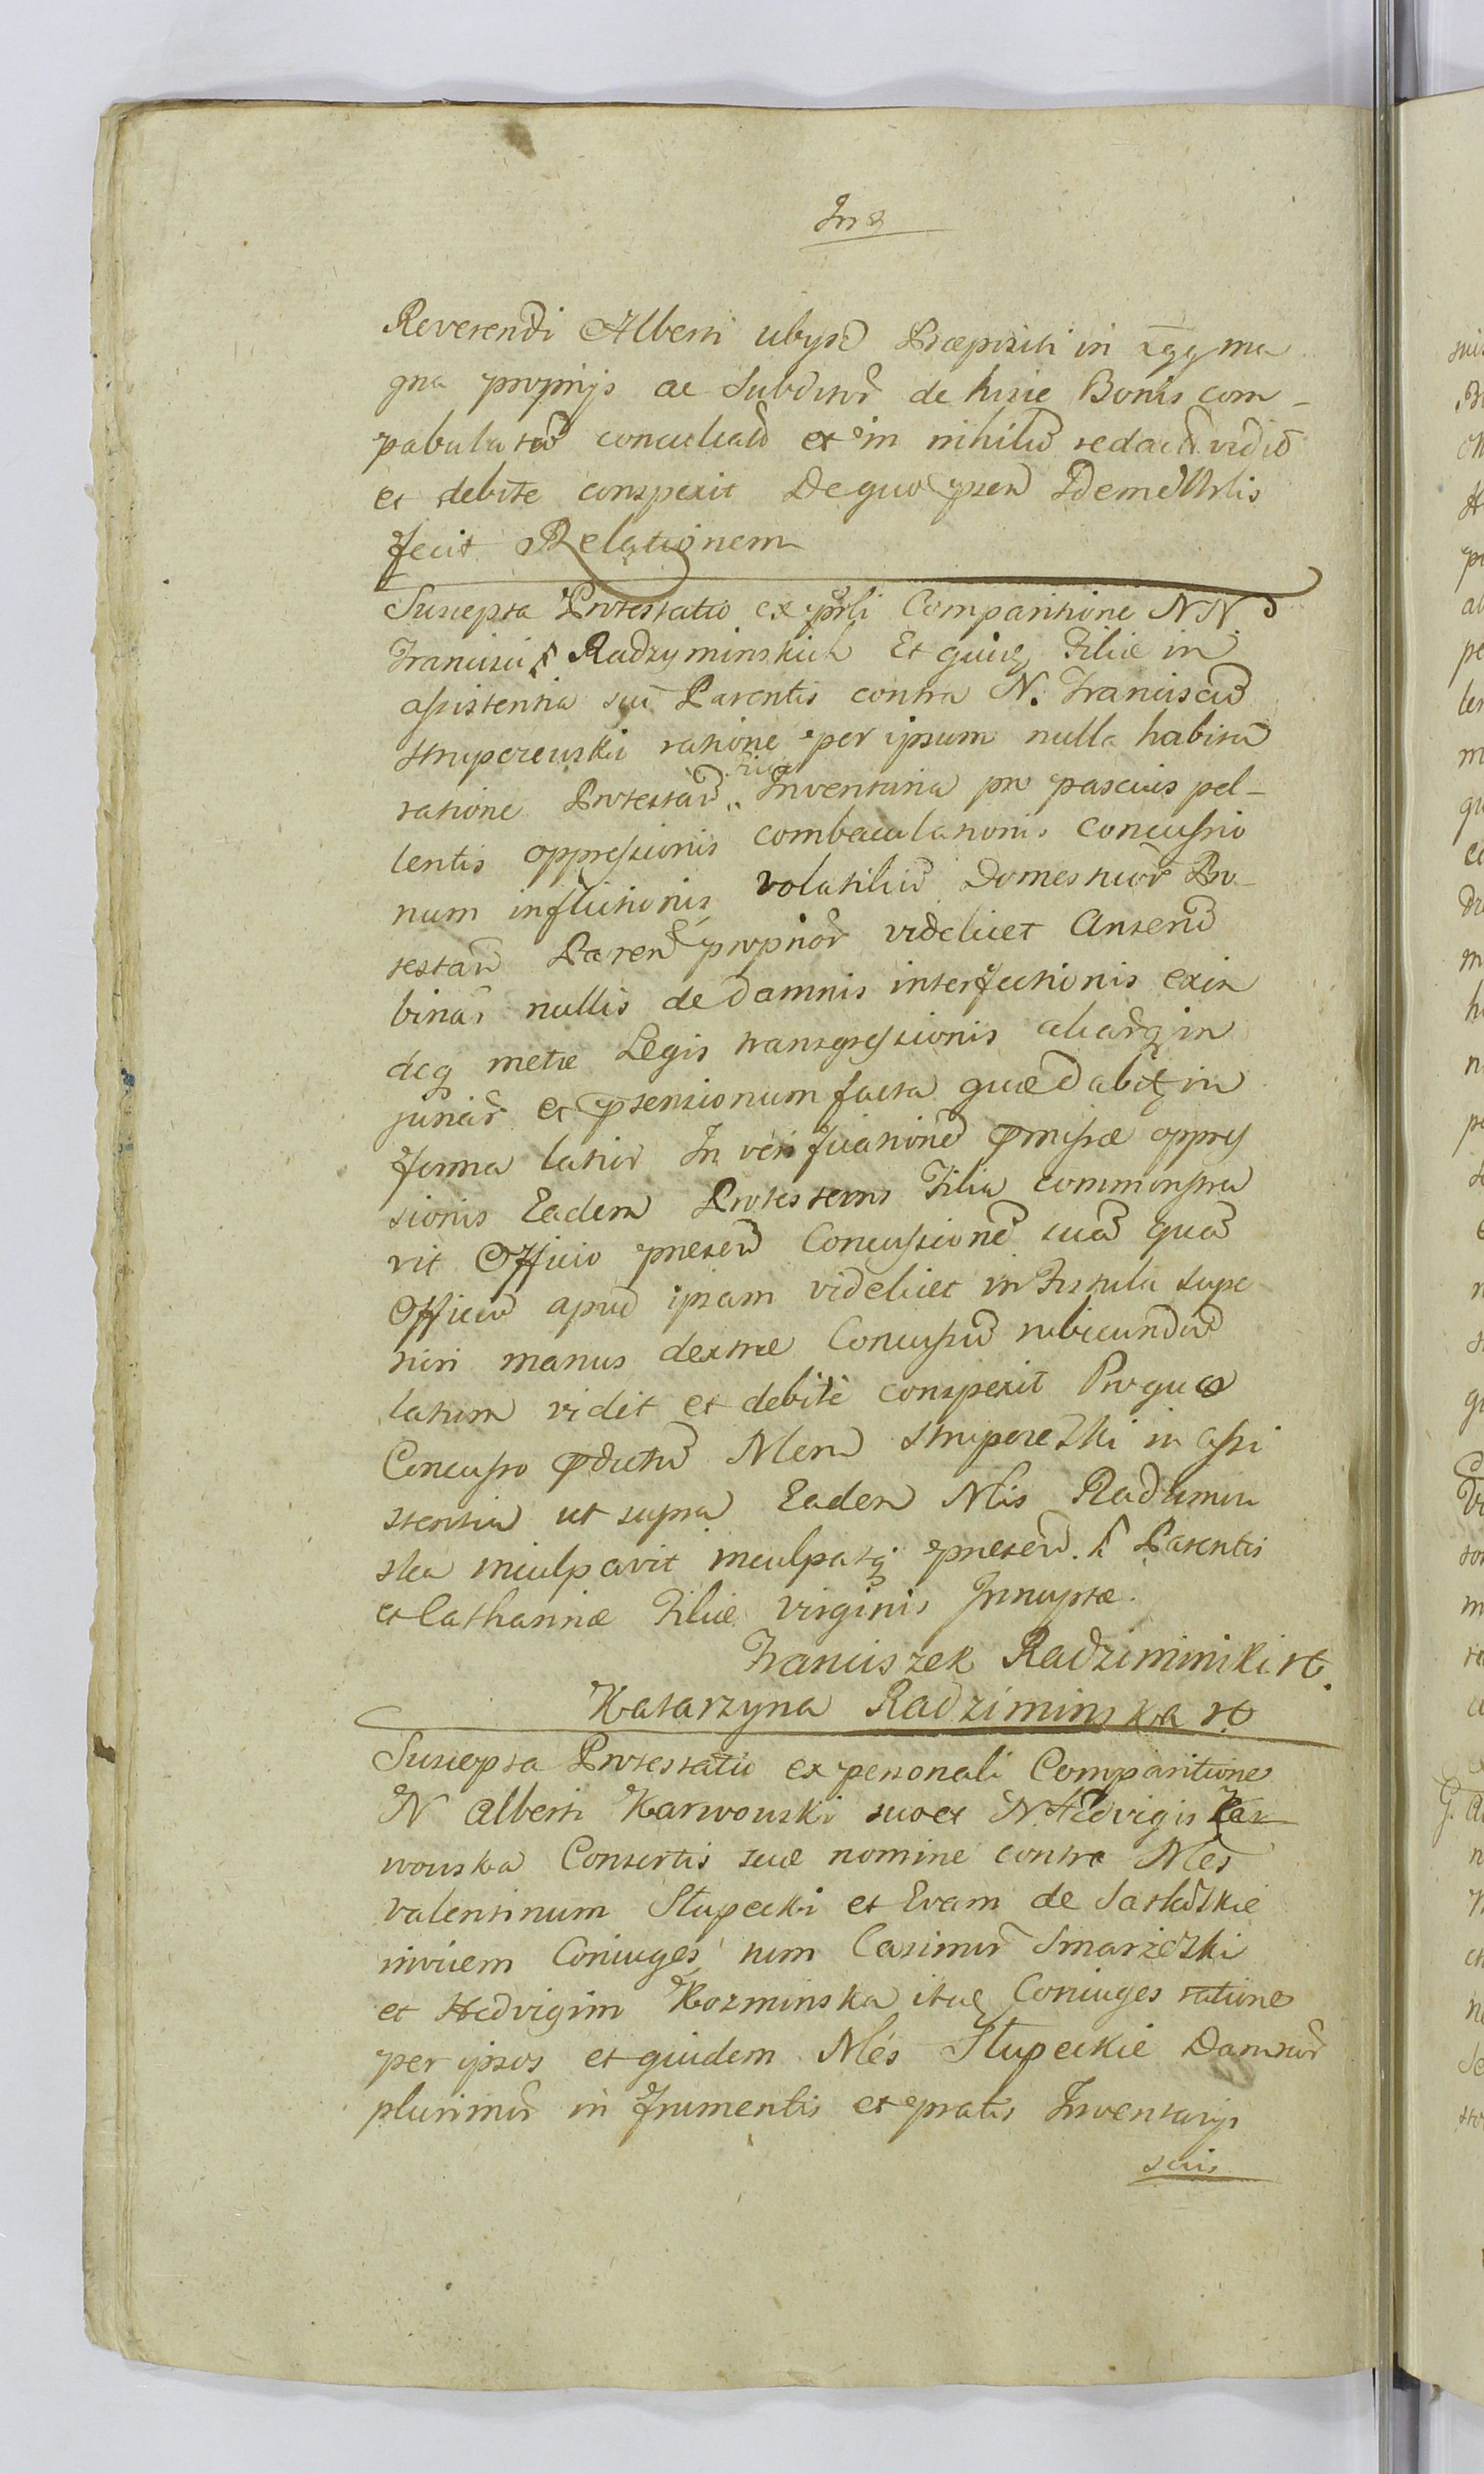 Reverendi Alberti ubysz Præpositi in
gna proprijs ac Subditor de hisce Bonis com-
pabulatũ conculcatũ et in nihilũ redactũ vidit
et debite conspexit De quo psens Idem Mrlis
fecit Relationem
Suscepta Protestatio ex psli Comparitione NN
Francisci Radzyminskich Et quius Filiæ in
assistentia sui Parentis contra N. Franciscũ
ratione per ipsum nulla habita
ratione Protestan Inventaria pro pascuis pel-
lentis oppressionis combaculationis concussio
num inflictionis volatiliũ Domesticor Pro-
testan Paren proprior videlicet Anserũ
binar nullis de damnis interfectionis exin
deq metæ Legis transgressionis aliarq in
juriar et psensionum facta quæ dabitq in
forma latior In verificationẽ præmissæ oppres
sionis Eadem Protestans Filia commonstra
vit Officio presen Concussionẽ suã quã
Officiũ apud ipsam videlicet in superi
manus dextræ Concussũ rubicundũ
latum vidit et debitè conspexit Pro quo
Concusso prædictũ Nlem in assi
stentia ut supra Eadem Nlis Radzimin
ska inculpavit inculpatq presen Parentis
et Catharinæ Filiæ Virginis Innuptæ.
Franciszek Radziminski
Katarzyna Radziminska
Suscepta Protestatio ex personali Comparitione
N Alberti Karwowski suo et N Hedvigis Kar
wowska Consortis suæ nomine contra Nles
Valentinum Słupecki et Evam de
invicem Coniuges, tum Casimir
et Hedvigim Kozminska itus Coniuges ratione
per ipsos et quidem Nles Słupeckie Damnor
plurimor in frumentis et pratis Inventarijs
suis